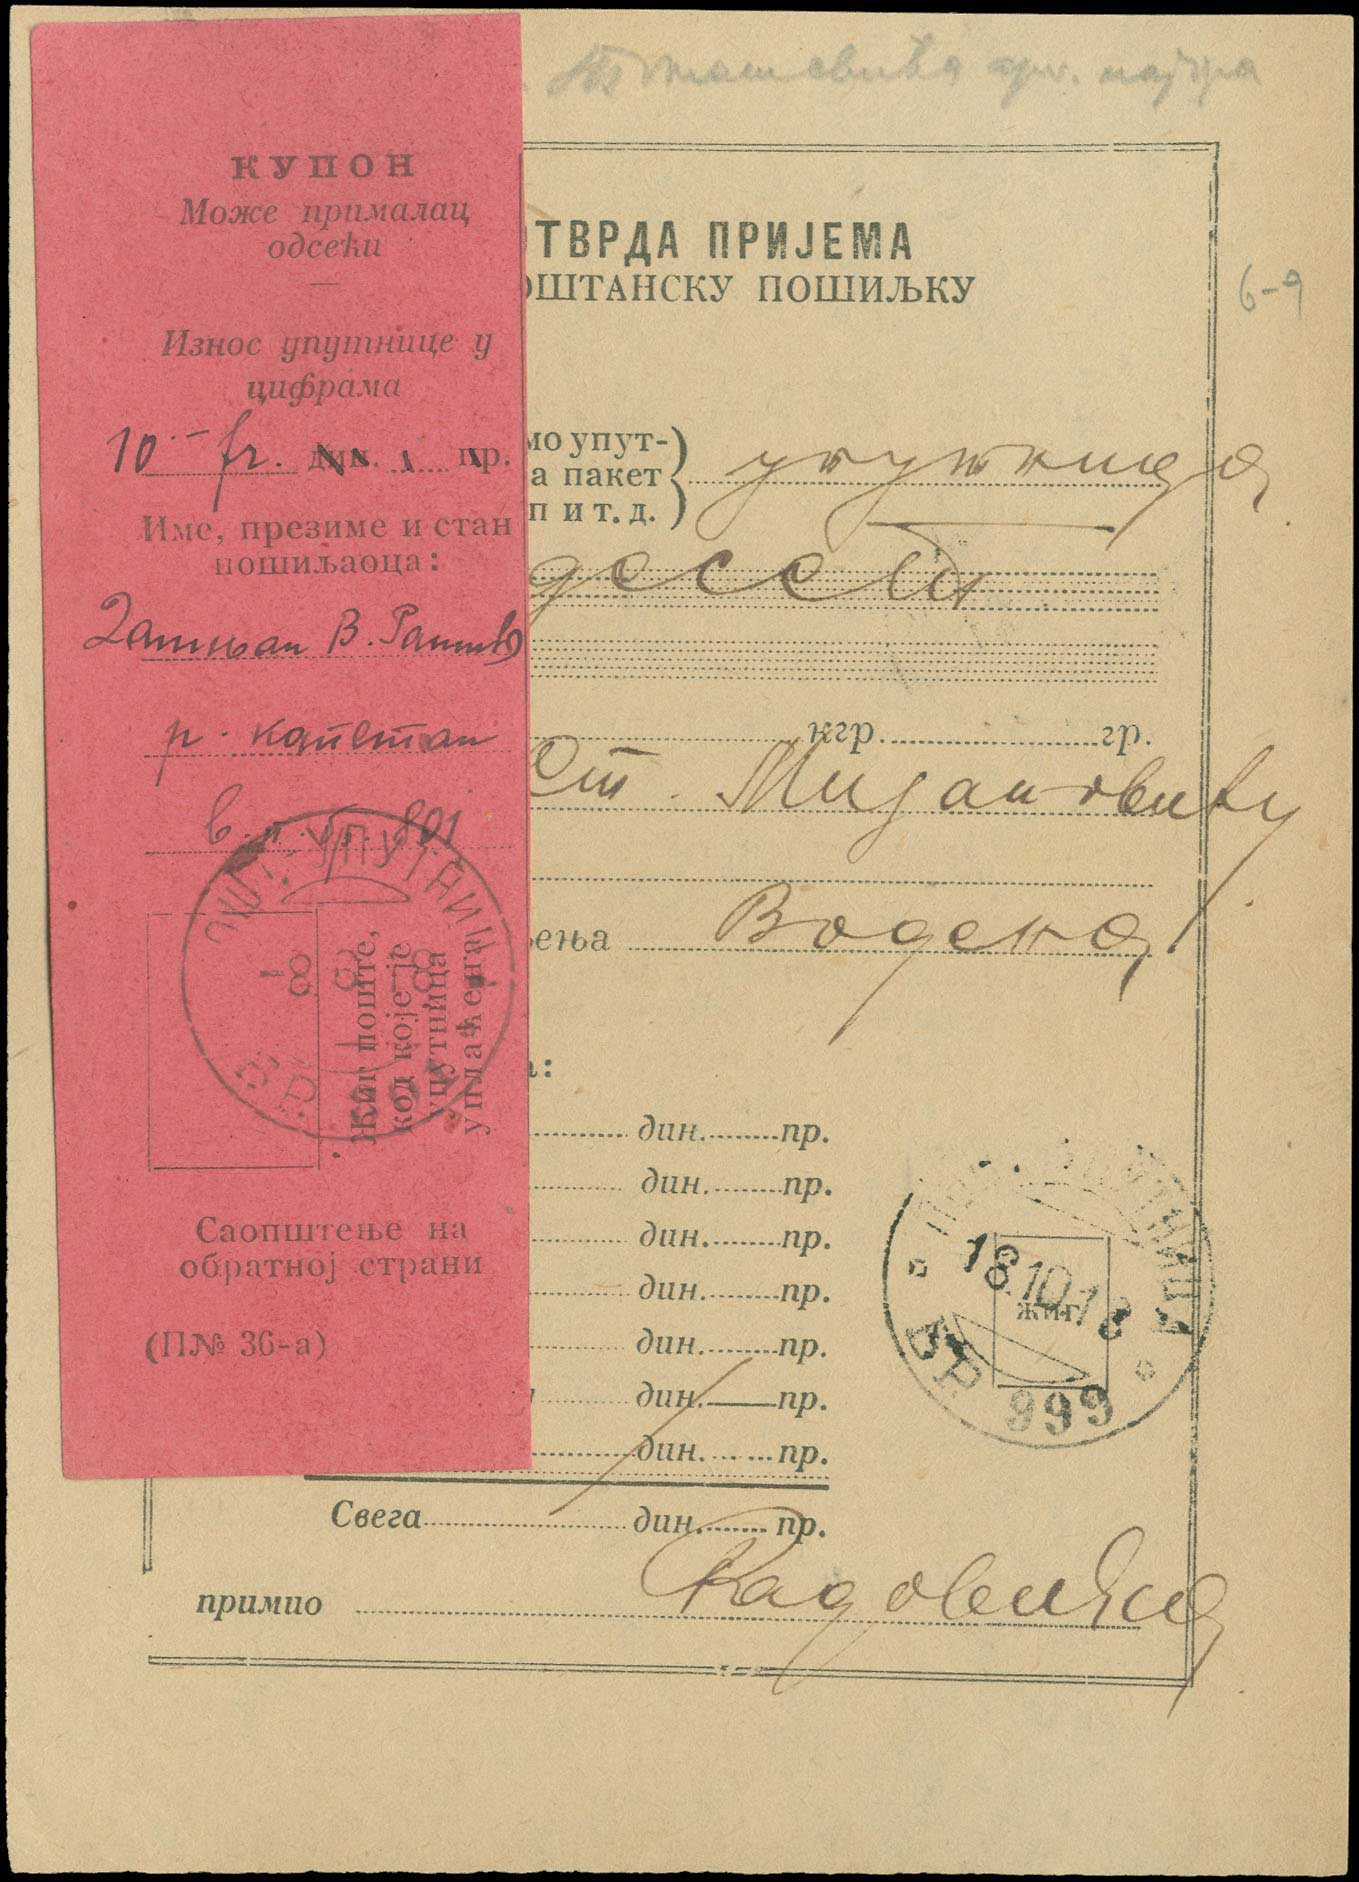 КУПОН
Може прималац
одсећи
Износ упутнице у
цифрама
10 fr. дин. пр.
Име, презиме и стан
пошиљаоца:
В.
р. капетан
в. п. бр. 801
ПОШТ. УПУТНИЦА
БР.
Жиг поште,
код које је
упутница
уплаћена
Саопштење на
обратној страни
(П№ 36-а)
ТВРДА ПРИЈЕМА
ОШТАНСКУ ПОШИЉКУ
6-9
мо упут-
а пакет
п и т. д.
упутница
десет
кгр. гр.
Ст. Мијановићу
ења Водена
а:
дин. пр.
дин. пр.
дин. пр.
дин. пр.
дин. пр.
дин. пр.
дин. пр.
Свега дин. пр.
примио
18.10.18
жиг.
БР 999